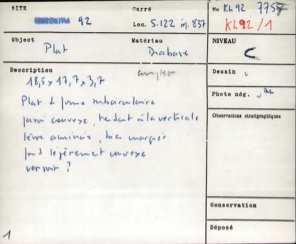 SITE
92
Carré
Loc. S.122 inj. 837
No KL 92 775
KL92/1
Object
Plat
Matériau
Diabase
NIVEAU
C
Description
18,5 x 17,7 x 3,7
Dessin
Plat de forme subcirculaire
paroi convexe, tendant à la verticale
lèvre amincie, bien marquée
fond légèrement convexe
verseoir ?
Photo nég.
Observations stratigraphiques
Conservation
Déposé
1